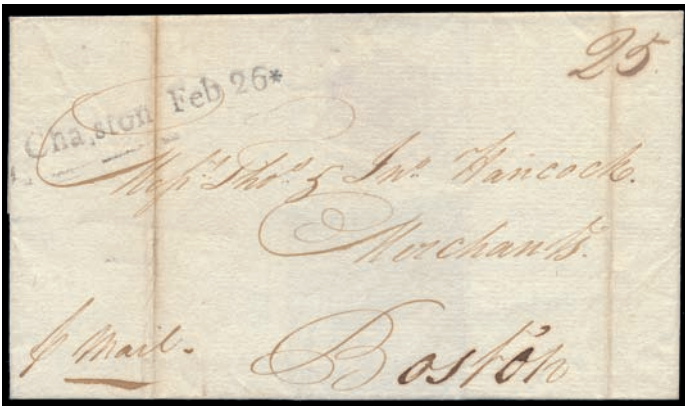 25
Cha,ston Feb 26*
Messrs Thos & Jno Hancock.
Merchants.
p Mail.
Boston